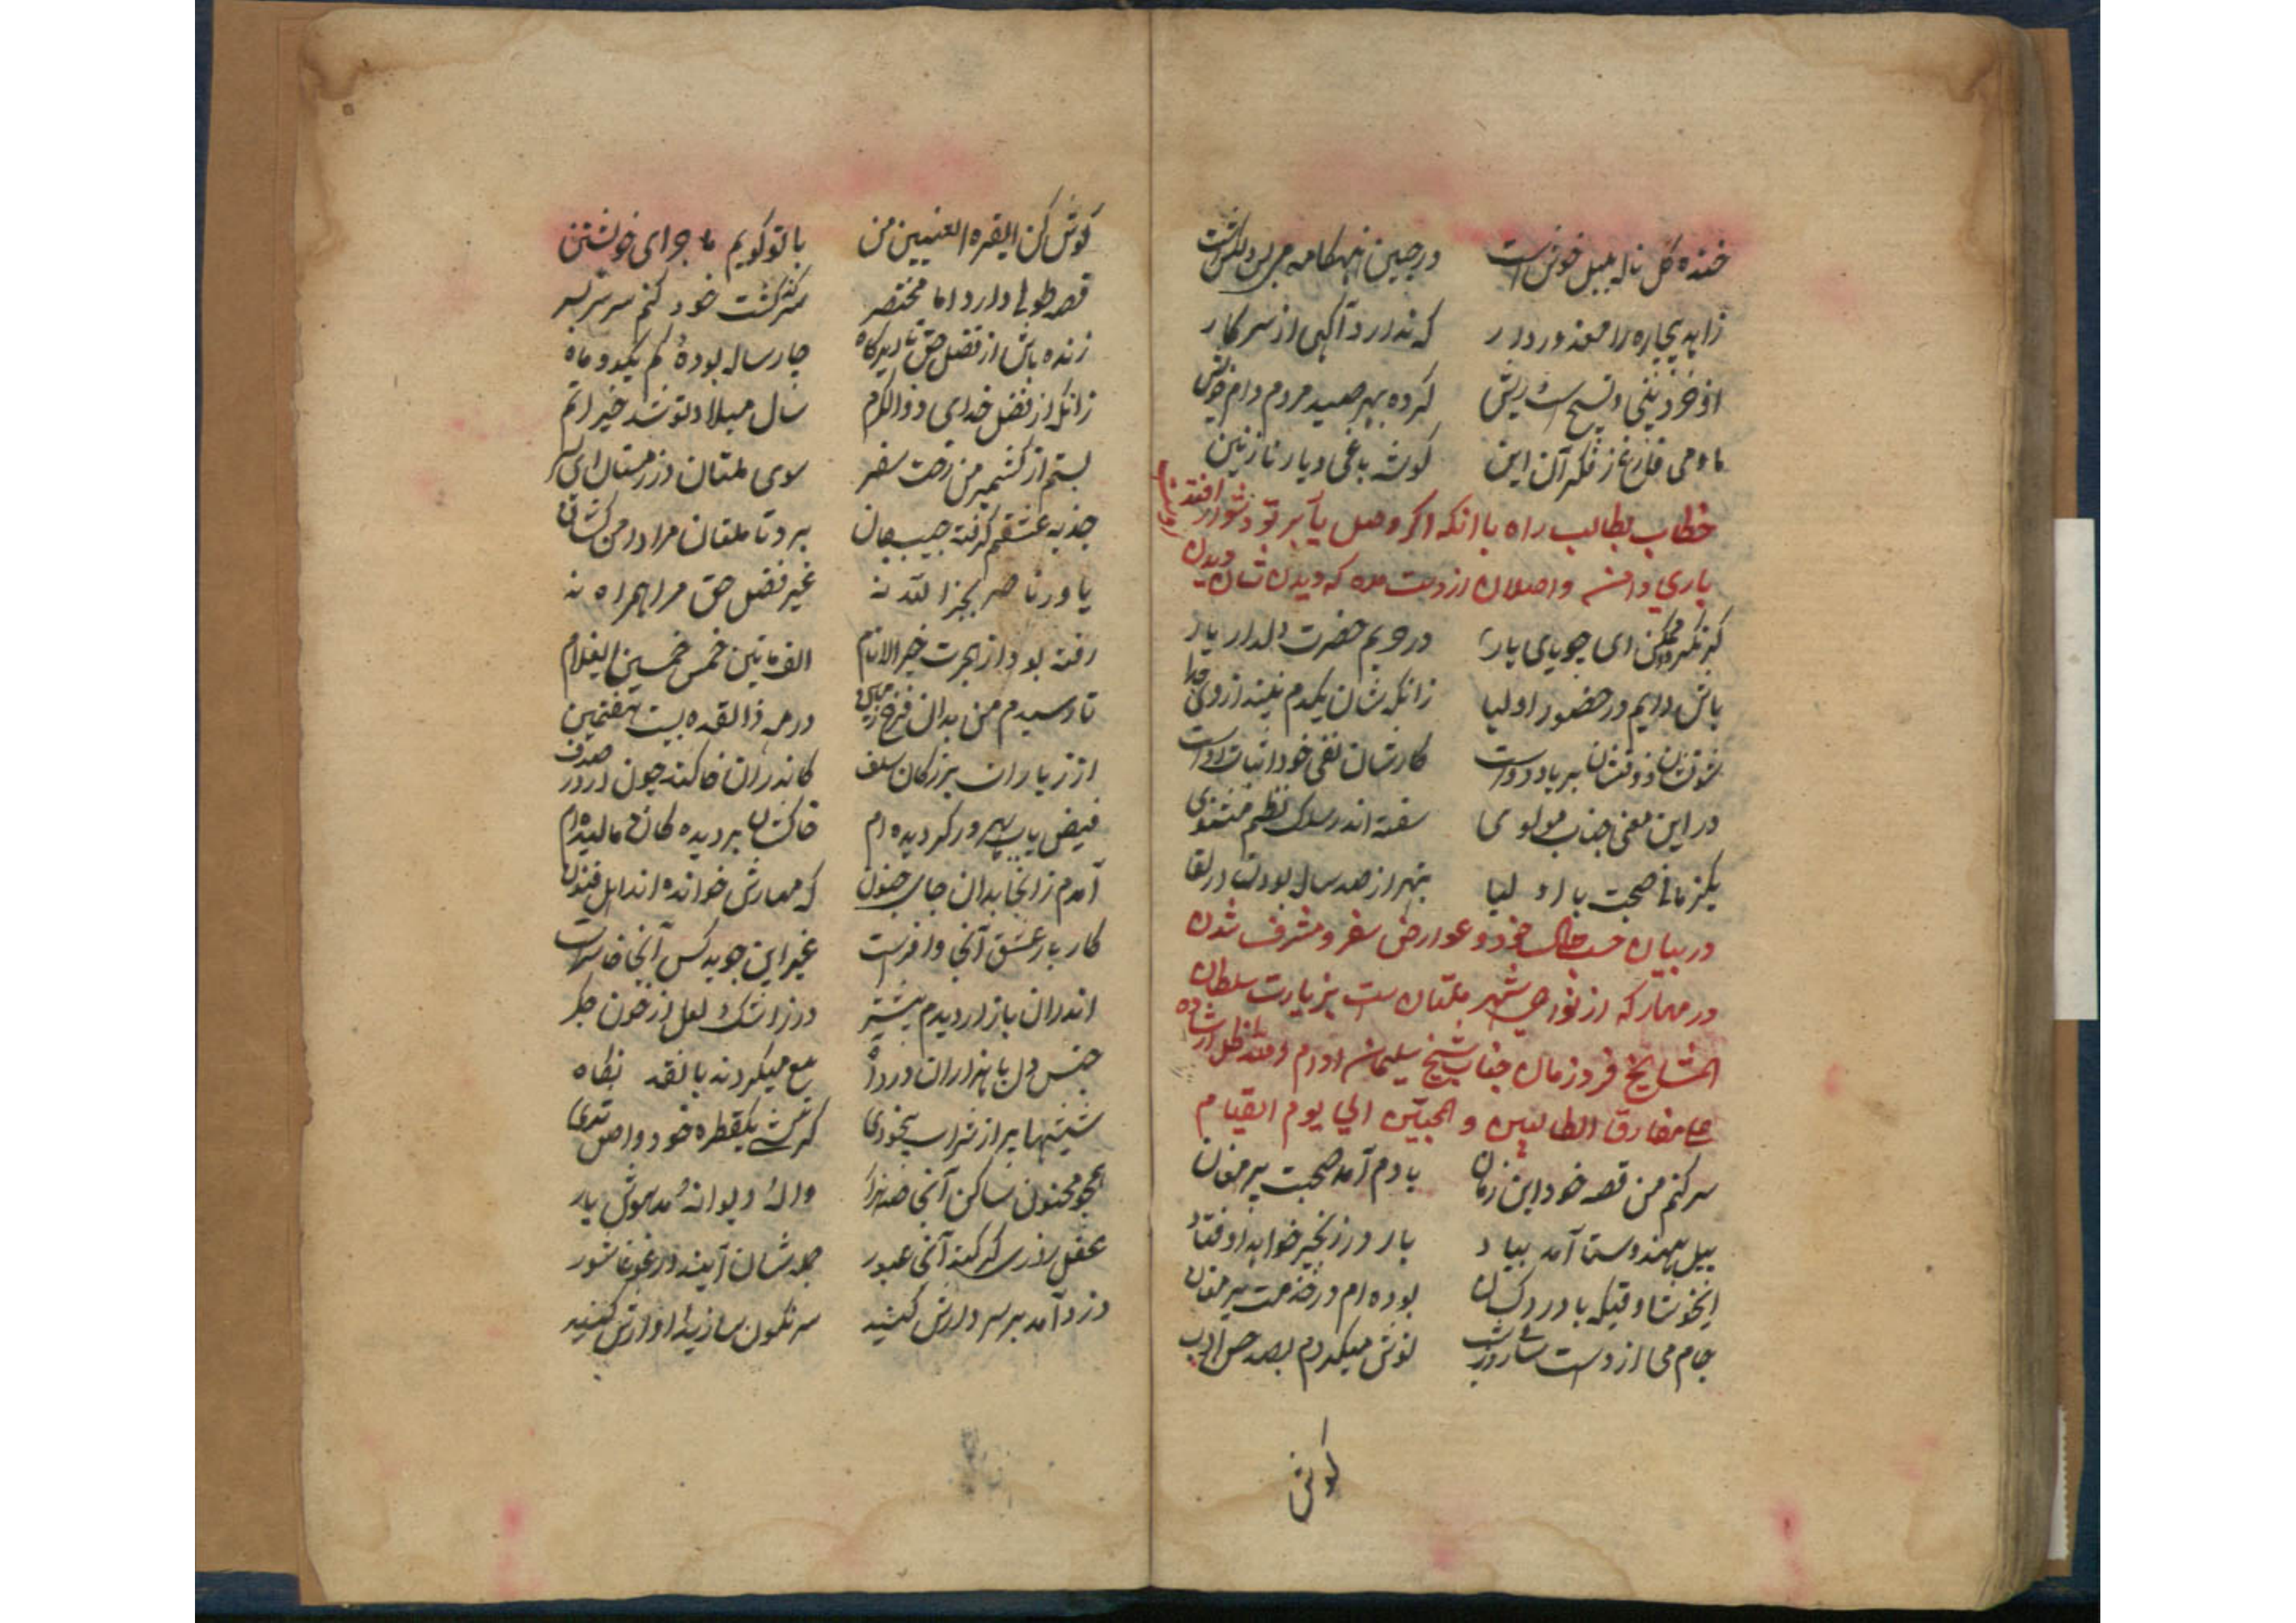 خنده گل ناله بلبل خوش است در چنین هنگامه می بس دلکش است
زاهد بیچاره را معذور دار که ندارد آگهی از سر کار
او خود بینی و تسبیح و ریش کرده بهر صید مردم دام خویش
ما و می فارغ ز فکر آن و این گوشه باغی و یار نازنین
خطاب بطالب راه با انکه اگر وصل یار بر تو دشوار افتد
باری دامن واصلان از دست مده که دیدن شان دیدن
گر نگردد ممکن ای جویای یار در حریم حضرت دلدار بار
باش دایم در حضور اولیا زانکه شان یکدم نیند از وی جدا
شوقشان و ذوقشان بر یاد دوست کارشان نفی خود اثبات اوست
در این معنی جناب مولوی سفته اندر سلک نظم مثنوی
یکزمانی صحبت با اولیا بهتر از صد سال بودن در لقا
در بیان حسب حال خود و عوارض سفر و مشرف شدن
در مهار که از نواحی شهر ملتان ست بزیارت سلطان
المشایخ فرد زمان جناب شیخ سلیمان ادام الله ظل ارشاده
علی مفارق الطالبین و المحبین الی یوم القیام
سر کنم من قصه خود این زمان یادم آمد صحبت پیر مغان
پیل هندوستان آمد بیاد بار در زنجیر خواهد اوفتاد
ایخوشا وقتیکه با درد کشان بوده ام در خدمت پیر مغان
جام می از دست ساقی روز و شب نوش میکردم بصد حسن ادب
گوش
گوش کن ای قرة العینین من با تو گویم ماجرای خویشتن
قصه طولی دارد اما مختصر سرگذشت خود کنم سر سر بسر
زنده باش از فضل حق تا دیرگاه چار ساله بوده کم یکدو ماه
زانکه از فضل خدای ذوالکرم سال میلاد تو شد خیر اتم
بستم از کشمیر من رخت سفر سوی ملتان در زمستان ای پسر
جذبه عشقم گرفته جیب جان برد تا ملتان مرا دامن کشان
یاور ناصر بجز الله نه غیر فضل حق مرا همراه نه
رفته بود از هجرت خیر الانام الف مائتین خمس خمسین ای غلام
تا رسیدم من بدان فرخ زمین در مه ذالقعده بیست هفتمین
از زیاران بزرگان سلف کاندران خاکند چون در در صدف
فیض یاب سهرورد گردیده ام خاکشان بر دیده گان مالیده ام
آمدم زانجا بدان جای جنون که مهارش خوانده اند اهل فنون
کار بار عشق آنجا وافر است غیر این جوید کس آنجا خاسر است
اندران بازار دیدم بیشتر در ز اشک و لعل از خون جگر
جنس دل با هزاران درد آه بیع میکردند با نقد نگاه
شیشها پر از شراب بیخودی هرکش یکقطره خورد واصل شدی
همچو مجنون ساکن آنجا صد هزار واله و دیوانه و مدهوش یار
عقل را زی گر کند آنجا عبور جمله شان آیند در غوغا شور
دزد آمد بر سر دارش کشید سرنگون سازید آوازش کنید